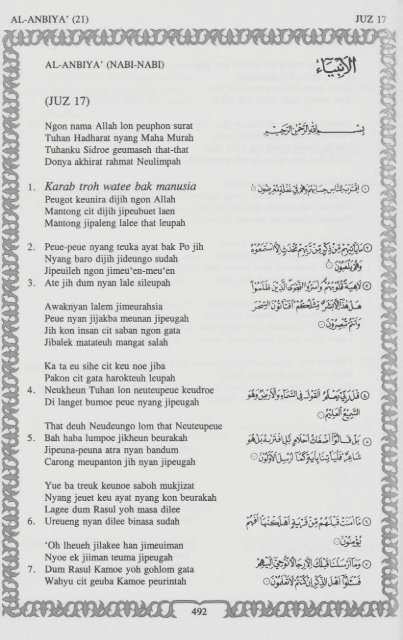 AL-ANBIYA' (21) JUZ 17
AL-ANBIYA' (NABI-NABI)
الأنبياء
(JUZ 17)
Ngon nama Allah lon peuphon surat
Tuhan Hadharat nyang Maha Murah
Tuhanku Sidroe geumaseh that-that
Donya akhirat rahmat Neulimpah
بسم الله الرحمن الرحيم
1. Karab troh watee bak manusia
Peugot keunira dijih ngon Allah
Mantong cit dijih jipeubuet laen
Mantong jipaleng lalee that leupah
اقترب للناس حسابهم وهم في غفلة معرضون
2. Peue-peue nyang teuka ayat bak Po jih
Nyang baro dijih jideungo sudah
Jipeuileh ngon jimeu'en-meu'en
ما يأتيهم من ذكر من ربهم محدث إلا استمعوه
وهم يلعبون
3. Ate jih dum nyan lale sileupah
لاهية قلوبهم وأسروا النجوى الذين ظلموا
Awaknyan lalem jimeurahsia
Peue nyan jijakba meunan jipeugah
Jih kon insan cit saban ngon gata
Jibalek matateuh mangat salah
هل هذا إلا بشر مثلكم أفتأتون السحر
وأنتم تبصرون
Ka ta eu sihe cit keu noe jiba
Pakon cit gata harokteuh leupah
4. Neukheun Tuhan lon neuteupeue keudroe
Di langet bumoe peue nyang jipeugah
قال ربي يعلم القول في السماء والأرض وهو
السميع العليم
That deuh Neudeungo lom that Neuteupeue
5. Bah haba lumpoe jikheun beurakah
Jipeuna-peuna atra nyan bandum
Carong meupanton jih nyan jipeugah
بل قالوا أضغاث أحلام بل افتراه بل هو
شاعر فليأتنا بآية كما أرسل الأولون
Yue ba treuk keunoe saboh mukjizat
Nyang jeuet keu ayat nyang kon beurakah
Lagee dum Rasul yoh masa dilee
6. Ureueng nyan dilee binasa sudah
ما آمنت قبلهم من قرية أهلكناها أفهم
يؤمنون
'Oh lheueh jilakee han jimeuiman
Nyoe ek jiiman teuma jipeugah
7. Dum Rasul Kamoe yoh gohlom gata
Wahyu cit geuba Kamoe peurintah
وما أرسلنا قبلك إلا رجالا نوحي إليهم
فسئلوا أهل الذكر إن كنتم لا تعلمون
492